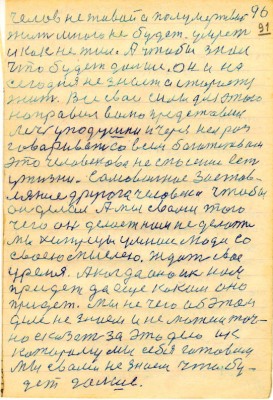 челов не живой а полумертвой 96
жит много не будет. умрет 91
и как не жил. А чтобы знал
что будет дальше. Он и на
сегодня не знал а старается
жит. Все свои силы для этого
направил
и через не раз
говоривает со всем богатством
это человеково не спасение ест
у жизни. Самовинное застав-
ляние другого человека чтобы
он делал А мы с вами того
чего он делает не делаем
мы хитрецы умные люди со
своею мыслею, ждать свое
время. А когда оно к нам
приедет да еще каким оно
придет. Мы не чего об этом
деле не знаем и не можем точ-
но сказат за это дело ик
которому мы себя готовим
Мы с вами не знаем что бу-
дет дальше.